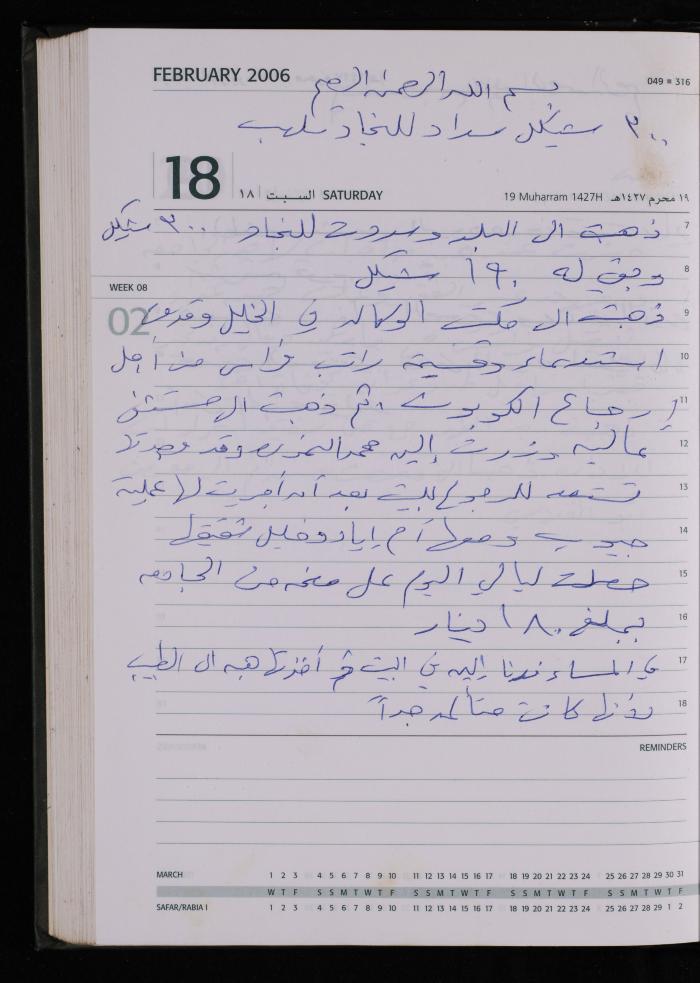 FEBRUARY 2006
049 ■ 316
بسم الله الرحمن الرحيم
٣٠٠ شيكل سداد للنجاد تلهب
18
١٨ السبت SATURDAY
19 Muharram 1427H ١٩ محرم ١٤٢٧هـ
7 ذهبت الى البلد وسددت للنجاد ٣٠٠ شيكل
8 وبقي له ١٩٠ شيكل
WEEK 08
02
9 ذهبت الى مكتب الوكالة في الخليل وقدمت
10 استدعاء وقسيمة راتب فراس من أجل
11 إرجاع الكوبونت ثم ذهبت الى مستشفى
12 عالية وزرت إلين محمد وقد وجدتها
13 تستعد للرجوع للبيت بعد أن أجريت لها عملية
14 جيوب ومعها أم إياد وخليل شقيقها
15 حصلت ليالي اليوم على منحة من الجامعة
16 بمبلغ ١٨٠ دينار
17 في المساء زرنا إلين في البيت ثم أخذتها هبه الى الطبيب
18 لأنها كانت متألمة جداً
REMINDERS
MARCH 1 2 3 4 5 6 7 8 9 10 11 12 13 14 15 16 17 18 19 20 21 22 23 24 25 26 27 28 29 30 31
W T F S S M T W T F S S M T W T F S S M T W T F S S M T W T F
SAFAR/RABIA I 1 2 3 4 5 6 7 8 9 10 11 12 13 14 15 16 17 18 19 20 21 22 23 24 25 26 27 28 29 1 2